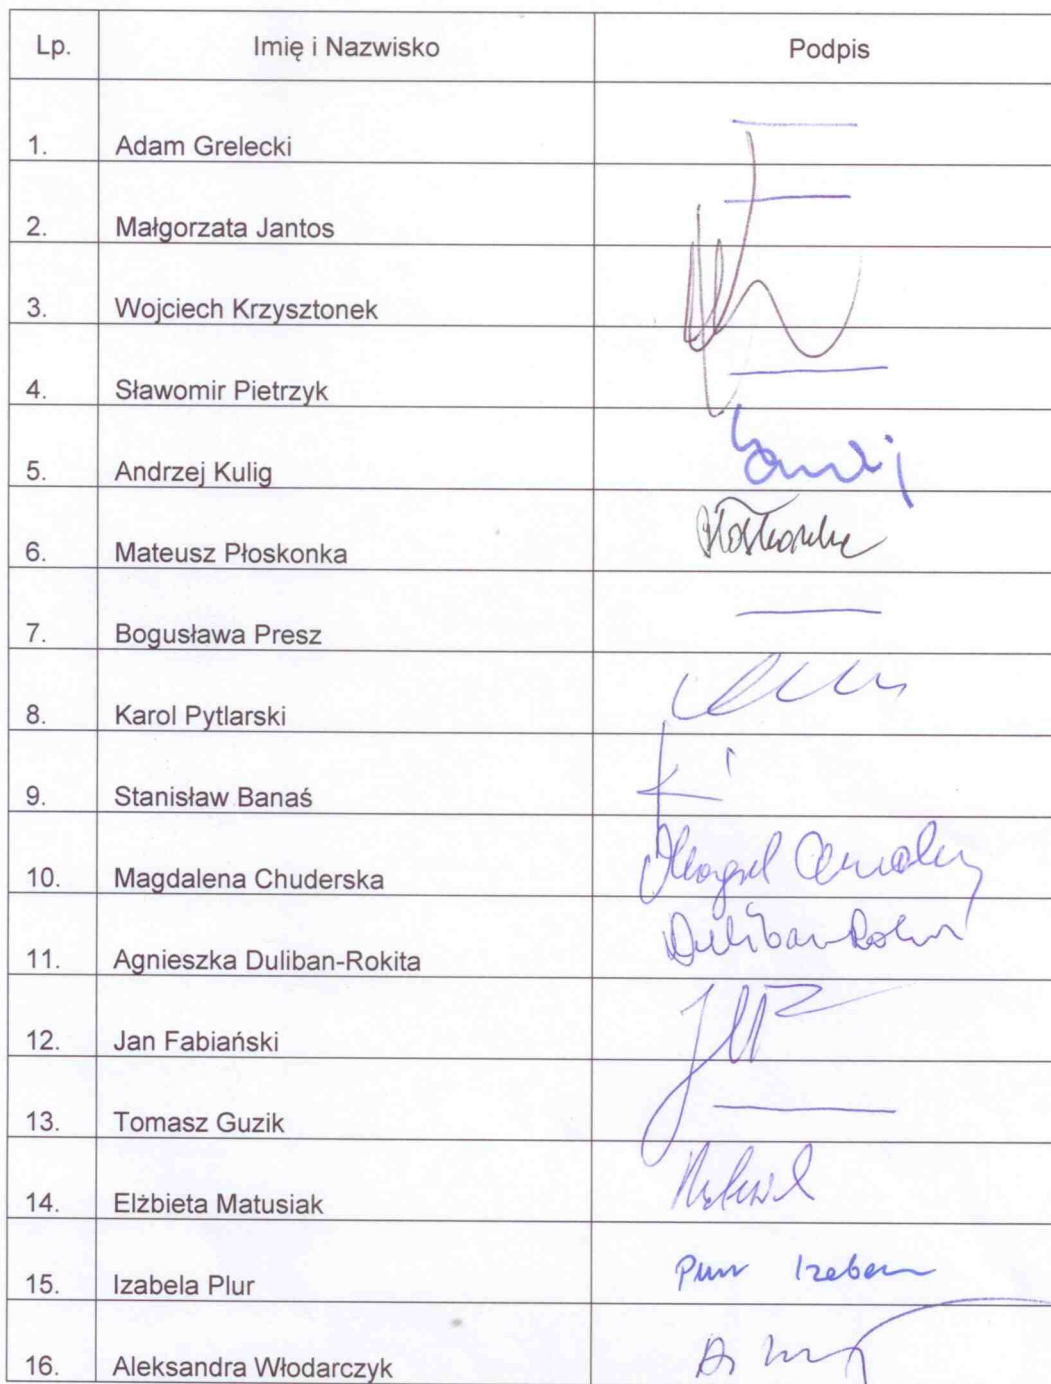 Lp. Imię i Nazwisko Podpis
1. Adam Grelecki
2. Małgorzata Jantos
3. Wojciech Krzysztonek
4. Sławomir Pietrzyk
5. Andrzej Kulig
6. Mateusz Płoskonka
7. Bogusława Presz
8. Karol Pytlarski
9. Stanisław Banaś
10. Magdalena Chuderska
11. Agnieszka Duliban-Rokita Duliban-Rokita
12. Jan Fabiański
13. Tomasz Guzik
14. Elżbieta Matusiak
15. Izabela Plur Plur Izabela
16. Aleksandra Włodarczyk